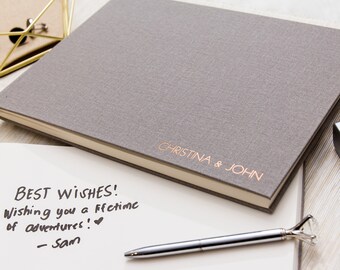 CHRISTINA & JOHN
BEST WISHES!
Wishing you a lifetime
of adventures! ♥
- Sam